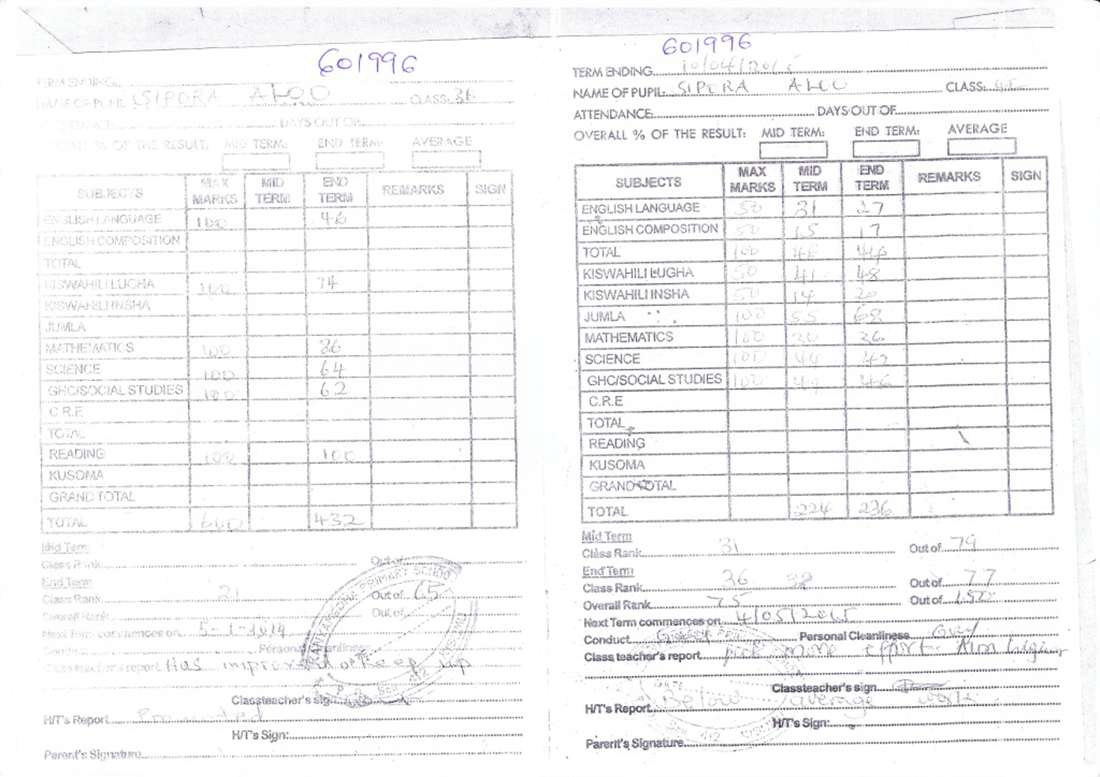 601996
TERM ENDING
NAME OF PUPIL SIPORA ALOO CLASS 3
ATTENDANCE DAYS OUT OF
OVERALL % OF THE RESULT: MID TERM: END TERM: AVERAGE
SUBJECTS MAX MARKS MID TERM END TERM REMARKS SIGN
ENGLISH LANGUAGE 100 46
ENGLISH COMPOSITION
TOTAL
KISWAHILI LUGHA 100 74
KISWAHILI INSHA
JUMLA
MATHEMATICS 100 86
SCIENCE 100 64
GHC/SOCIAL STUDIES 100 62
C.R.E
TOTAL
READING 100 100
KUSOMA
GRAND TOTAL
TOTAL 600 432
Mid Term
Class Rank Out of
End Term
Class Rank 21 Out of 65
Overall Rank Out of
Next Term commences on 5-1-2014
Conduct Personal
Class teacher's report Has improved Keep up
Classteacher's sign
H/T's Report Promoted
H/T's Sign:
Parent's Signature
PRIMARY SCHOOL
601996
TERM ENDING 10/04/2015
NAME OF PUPIL: SIPORA ALOO CLASS:
ATTENDANCE DAYS OUT OF
OVERALL % OF THE RESULT: MID TERM: END TERM: AVERAGE
SUBJECTS MAX MARKS MID TERM END TERM REMARKS SIGN
ENGLISH LANGUAGE 50 31 27
ENGLISH COMPOSITION 50 15 17
TOTAL 100 46 44
KISWAHILI LUGHA 50 41 48
KISWAHILI INSHA 50 14 20
JUMLA 100 55 68
MATHEMATICS 100 30 36
SCIENCE 100 44 42
GHC/SOCIAL STUDIES 100 49 46
C.R.E
TOTAL
READING
KUSOMA
GRAND TOTAL
TOTAL 224 236
Mid Term
Class Rank 31 Out of 79
End Term
Class Rank 36 38 Out of 77
Overall Rank 75 Out of 152
Next Term commences on 4/05/2015
Conduct Good Personal Cleanliness
Class teacher's report pick more effort Aim higher
Classteacher's sign
H/T's Report Below average work
H/T's Sign:
Parent's Signature